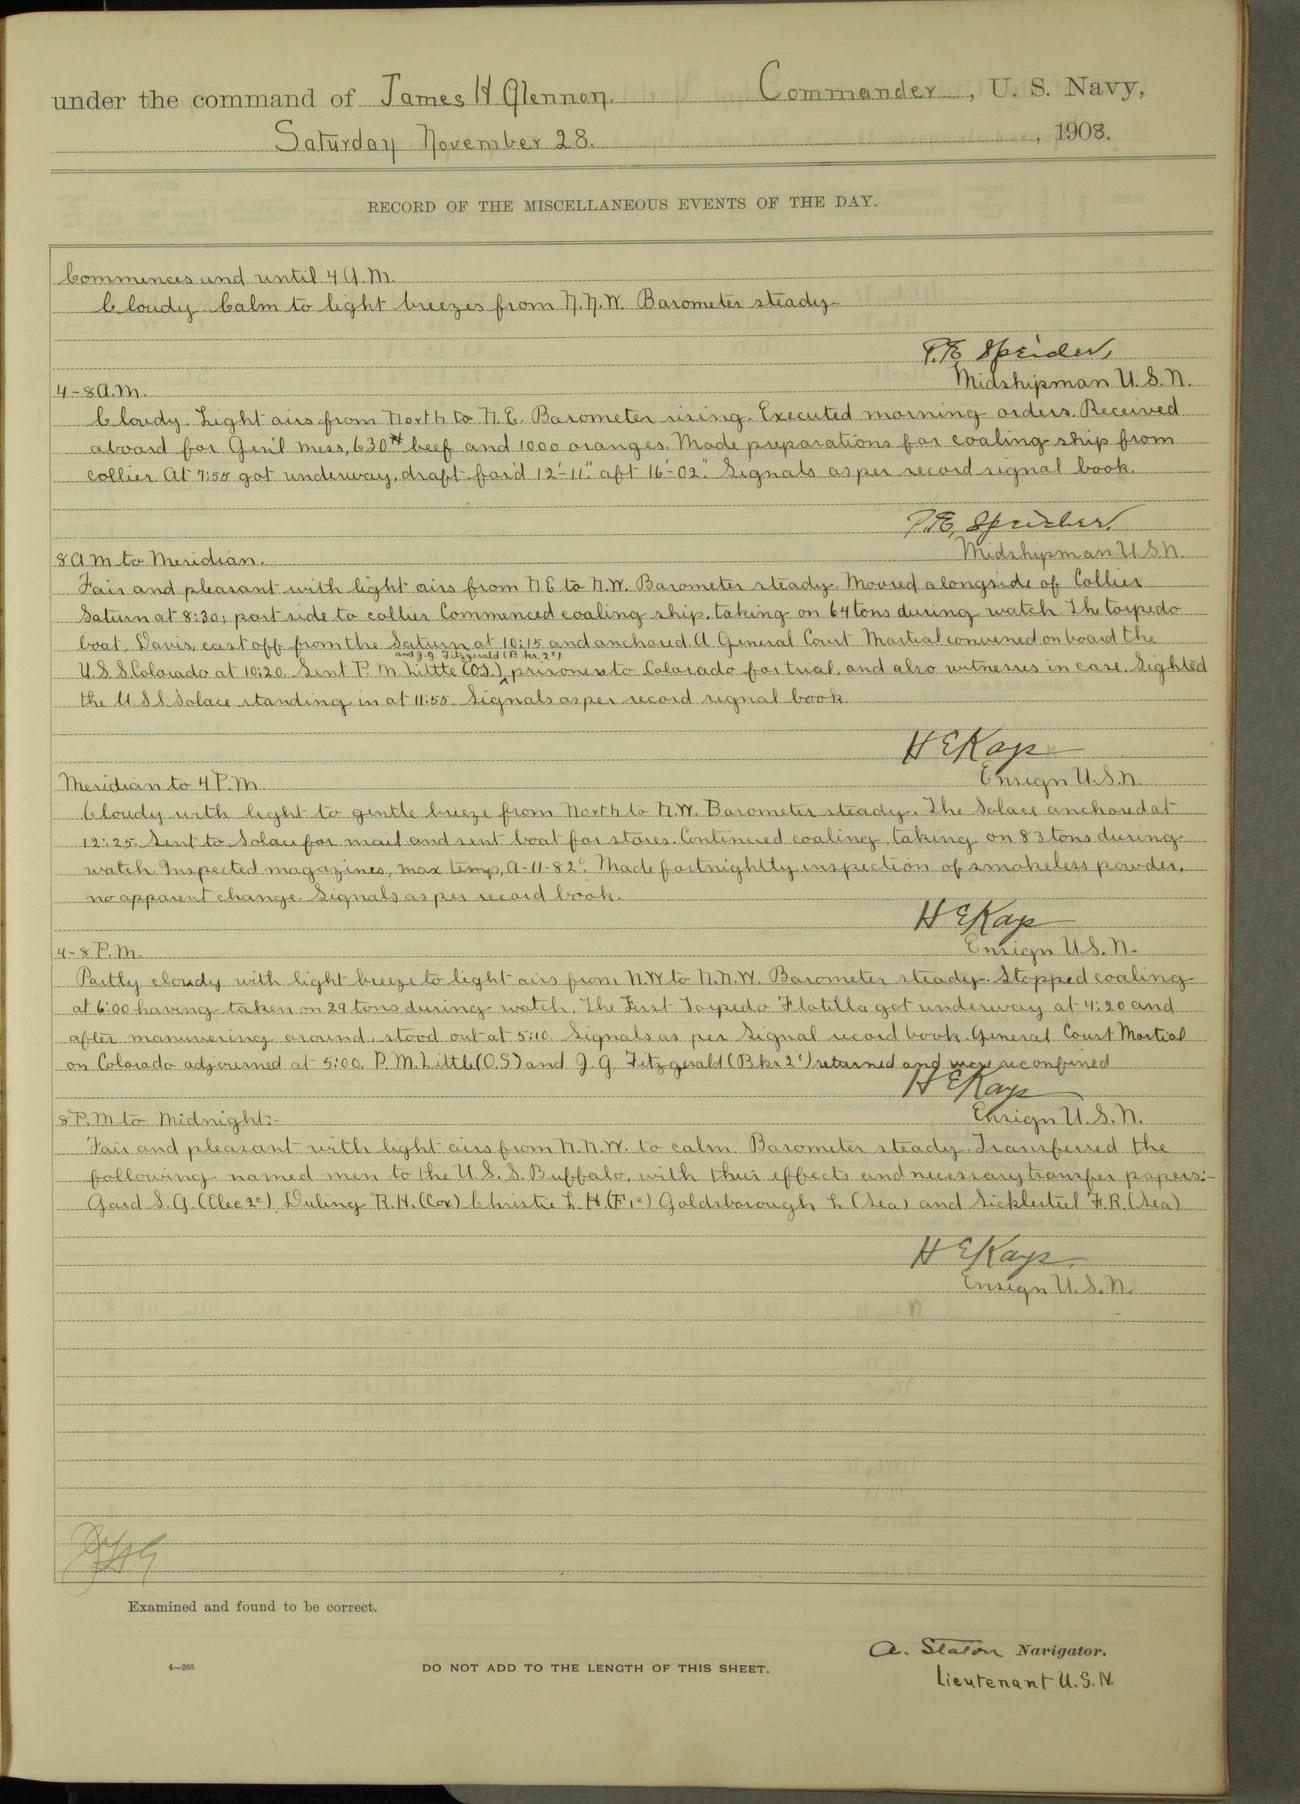 under the command of James H Glennon. Commander, U. S. Navy,
Saturday November 28., 1908.
RECORD OF THE MISCELLANEOUS EVENTS OF THE DAY.
Commences and until 4 A.M.
Cloudy. Calm to light breezes from N.N.W. Barometer steady.
P.E. Speicher,
Midshipman U.S.N.
4-8 A.M.
Cloudy. Light airs from North to N.E. Barometer rising. Executed morning orders. Received
aboard for Gen'l mess, 630# beef and 1000 oranges. Made preparations for coaling ship from
collier. At 7:55 got underway, draft for'd 12'-11". aft 16'-02". Signals as per record signal book.
P.E. Speicher.
Midshipman U.S.N.
8 A M to Meridian.
Fair and pleasant with light airs from N E to N.W. Barometer steady. Moored alongside of Collier
Saturn at 8:30; port side to collier Commenced coaling ship, taking on 64 tons during watch. The torpedo
boat, Davis, cast off from the Saturn at 10:15 and anchored. A General Court Martial convened on board the
and J.G. Fitzgerald (B kr. 2c)
U.S.S. Colorado at 10:20. Sent P. M. Little (O.S.) prisoners to Colorado for trial, and also witnesses in case. Sighted
the U S S Solace standing in at 11:55. Signals as per record signal book.
H E Kays
Ensign U.S.N.
Meridian to 4 P.M.
Cloudy with light to gentle breeze from North to N.W. Barometer steady. The Solace anchored at
12:25. Sent to Solace for mail and sent boat for stores. Continued coaling, taking on 83 tons during
watch. Inspected magazines, max temp, A-11-82°. Made fortnightly inspection of smokeless powder,
no apparent change. Signals as per record book.
H E Kays
Ensign U.S.N.
4-8 P.M.
Partly cloudy with light breeze to light airs from N.W to N.N.W. Barometer steady. Stopped coaling
at 6:00 having taken on 29 tons during watch. The First Torpedo Flotilla got underway at 4:20 and
after manuvering around, stood out at 5:10. Signals as per Signal record book. General Court Martial
on Colorado adjourned at 5:00. P. M. Little (O.S) and J. G. Fitzgerald (B kr 2c) returned and were reconfined
H E Kays
Ensign U.S.N.
8 P.M to Midnight:-
Fair and pleasant with light airs from N.N.W. to calm. Barometer steady. Transferred the
following named men to the U.S.S. Buffalo, with their effects and necessary transfer papers:-
Gard S. G. (Elec 2c) Duling R.H. (Cox) Christie L. H. (F1c) Goldsborough L (Sea) and Sicklesteel F.R. (Sea)
H E Kays.
Ensign U.S.N.
Examined and found to be correct.
A. Staton Navigator.
4—265 DO NOT ADD TO THE LENGTH OF THIS SHEET.
Lieutenant U.S.N.